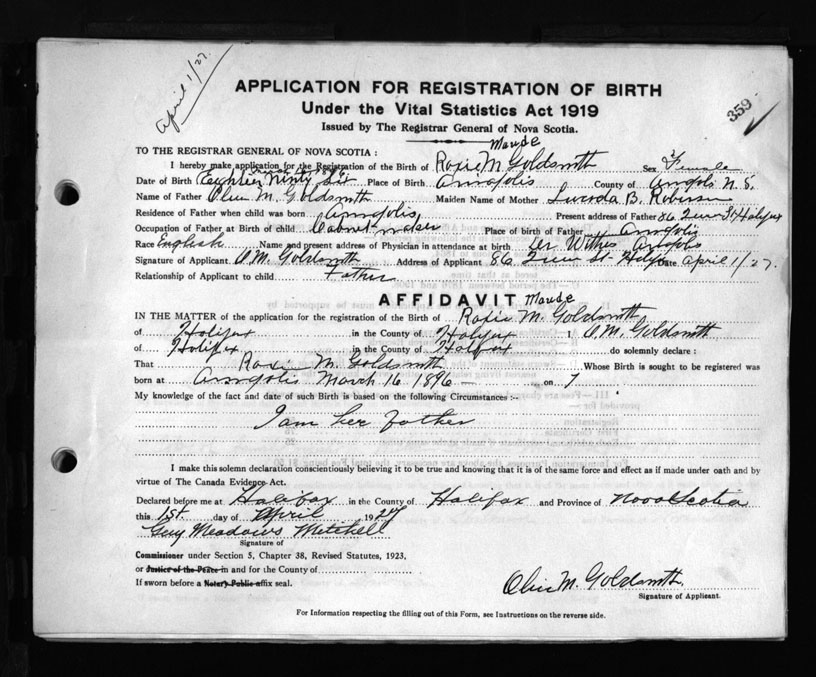 April 1/27.
359
APPLICATION FOR REGISTRATION OF BIRTH
Under the Vital Statistics Act 1919
Issued by The Registrar General of Nova Scotia.
Maude
TO THE REGISTRAR GENERAL OF NOVA SCOTIA:
I hereby make application for the Registration of the Birth of Roxie M Goldsmith Sex Female
Date of Birth Place of Birth Annapolis County of N. S.
Name of Father M. Goldsmith Maiden Name of Mother B.
Residence of Father when child was born Annapolis Present address of Father 86 St Halifax
Occupation of Father at Birth of child Cabinet maker Place of birth of Father Annapolis
Race English Name and present address of Physician in attendance at birth Dr
Signature of Applicant O.M. Goldsmith Address of Applicant 86 St Date April 1/27.
Relationship of Applicant to child Father
AFFIDAVIT Maude
IN THE MATTER of the application for the registration of the Birth of Roxie M. Goldsmith
of Halifax in the County of Halifax I O.M. Goldsmith
of Halifax in the County of Halifax do solemnly declare:
That Roxie M. Goldsmith Whose Birth is sought to be registered was
born at Annapolis March 16 1896 on
My knowledge of the fact and date of such Birth is based on the following Circumstances:-
I am her father
I make this solemn declaration conscientiously believing it to be true and knowing that it is of the same force and effect as if made under oath and by
virtue of The Canada Evidence Act.
Declared before me at Halifax in the County of Halifax and Province of Nova Scotia
this 1st day of April 1927
Guy Meadows Mitchell
Signature of
Commissioner under Section 5, Chapter 38, Revised Statutes, 1923,
or Justice of the Peace in and for the County of
If sworn before a Notary Public affix seal.
M. Goldsmith
Signature of Applicant.
For Information respecting the filling out of this Form, see Instructions on the reverse side.